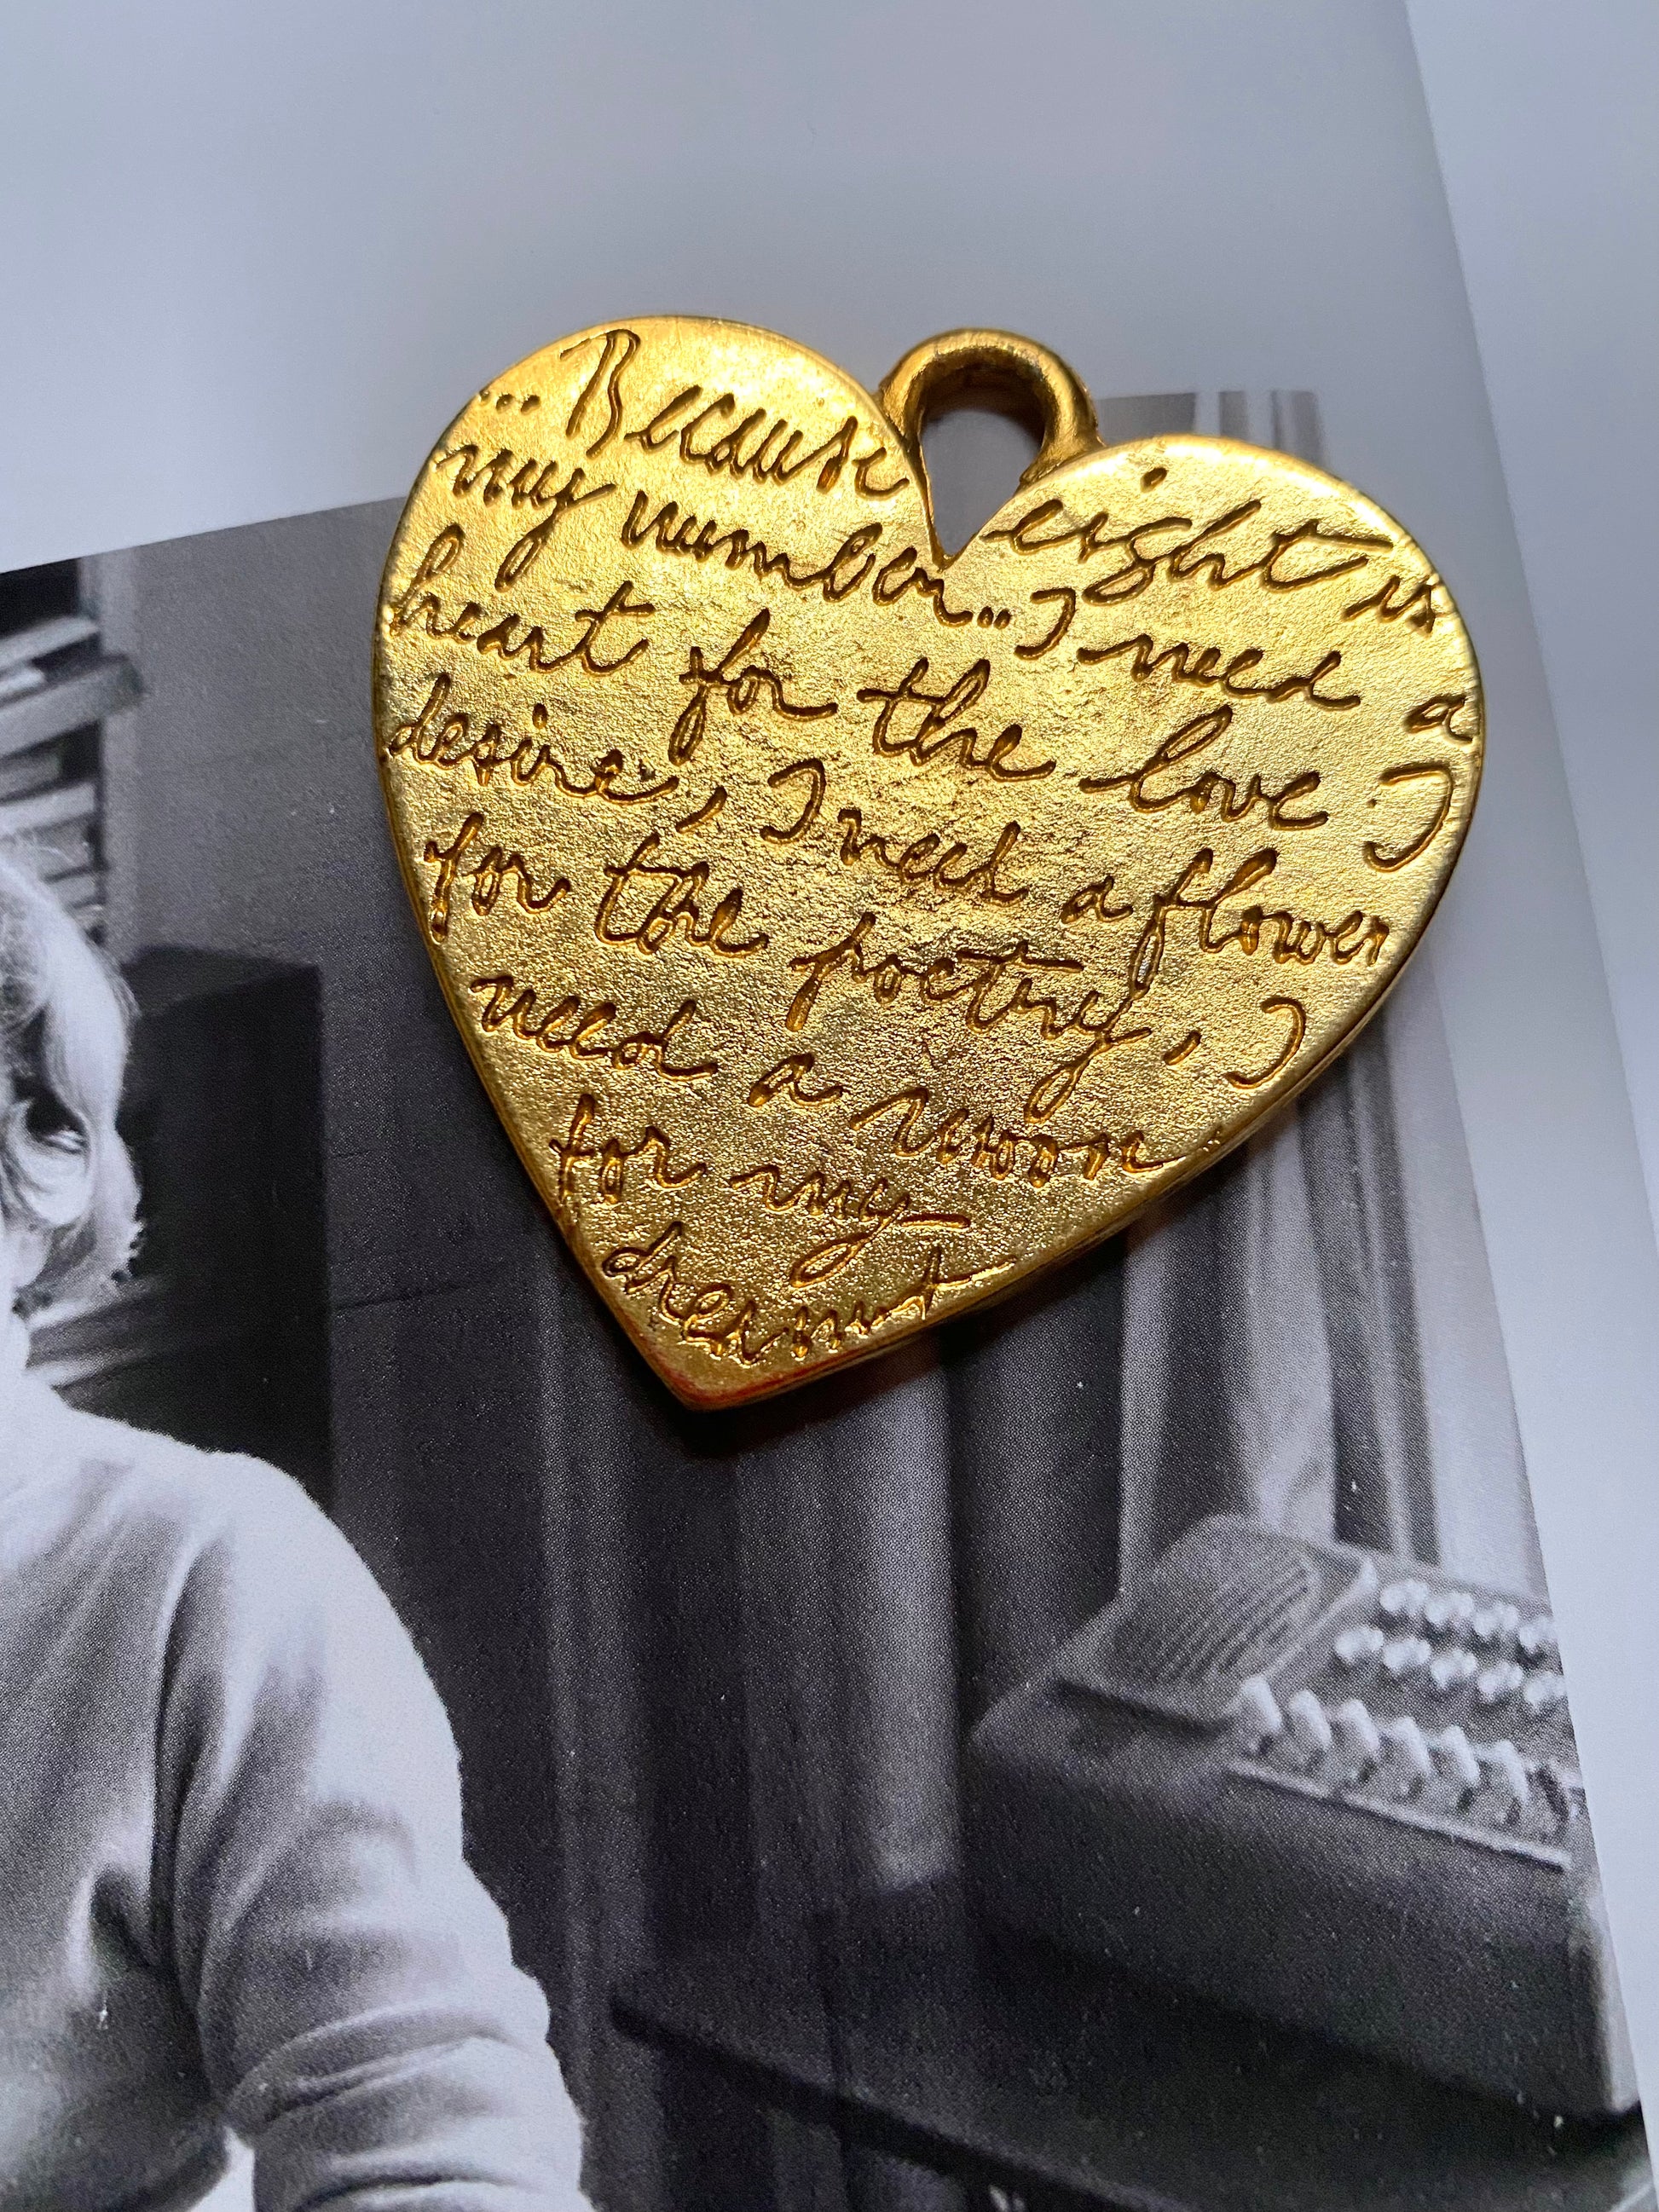 ... Because eight is
my number... I need a
heart for the love I
desire, I need a flower
for the poetry, I
need a moon
for my
dreams